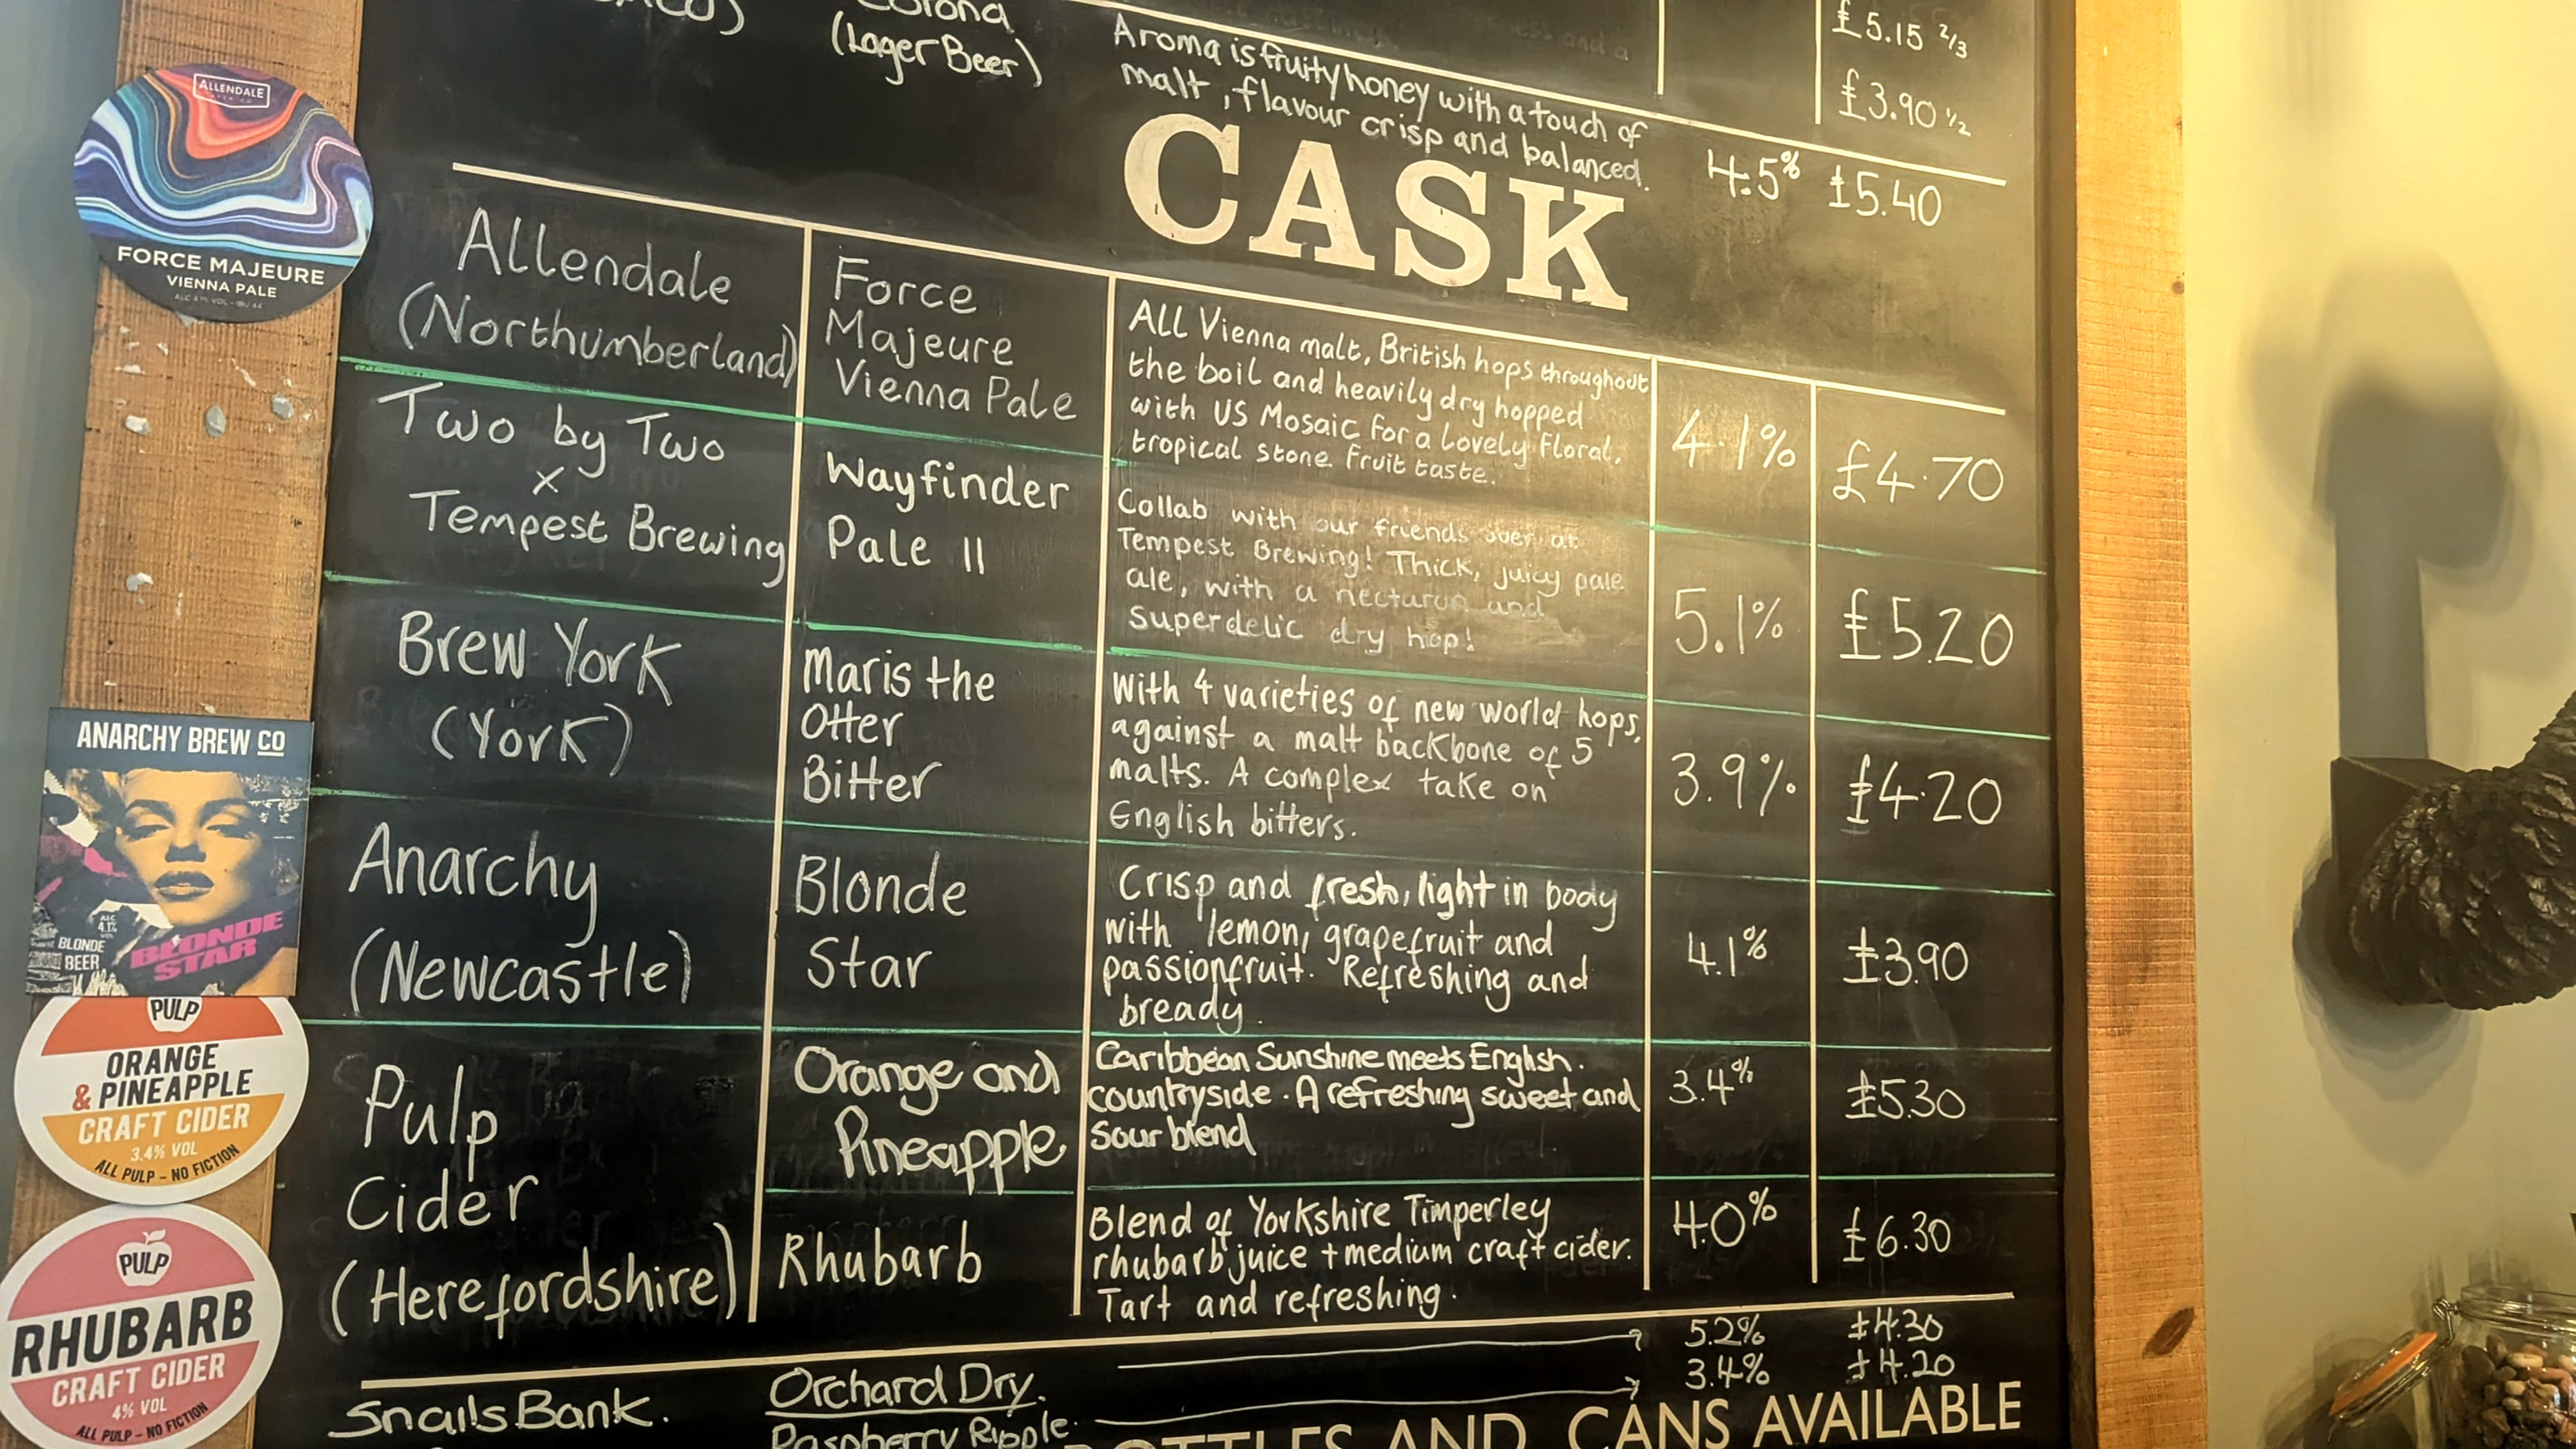 (Lager Beer)
Aroma is fruity honey with a touch of
malt, flavour crisp and balanced.
£5.15 2/3
£3.90 1/2
4.5% £5.40
CASK
ALLENDALE
FORCE MAJEURE
VIENNA PALE
Allendale
(Northumberland)
Force
Majeure
Vienna Pale
ALL Vienna malt, British hops throughout
the boil and heavily dry hopped
with US Mosaic for a lovely floral,
tropical stone fruit taste.
4.1%
£4.70
Two by Two
x
Tempest Brewing
Wayfinder
Pale 11
Collab with our friends over at
Tempest Brewing! Thick, juicy pale
ale, with a nectaron and
Superdelic dry hop!
5.1%
£5.20
Brew York
(York)
Maris the
Otter
Bitter
With 4 varieties of new world hops,
against a malt backbone of 5
malts. A complex take on
English bitters.
3.9%
£4.20
ANARCHY BREW CO
ALC
4.1%
VOL
BLONDE
BEER
BLONDE
STAR
Anarchy
(Newcastle)
Blonde
Star
Crisp and fresh, light in body
with lemon, grapefruit and
passionfruit. Refreshing and
bready.
4.1%
£3.90
PULP
ORANGE
& PINEAPPLE
CRAFT CIDER
3.4% VOL
ALL PULP - NO FICTION
Pulp
Cider
(Herefordshire)
Orange and
Pineapple
Caribbean Sunshine meets English.
countryside. A refreshing sweet and
sour blend
3.4%
£5.30
PULP
RHUBARB
CRAFT CIDER
4% VOL
ALL PULP - NO FICTION
Rhubarb
Blend of Yorkshire Timperley
rhubarb juice + medium craft cider.
Tart and refreshing.
4.0%
£6.30
Snails Bank.
Orchard Dry.
5.2% £4.30
Raspberry Ripple.
3.4% £4.20
AND CANS AVAILABLE